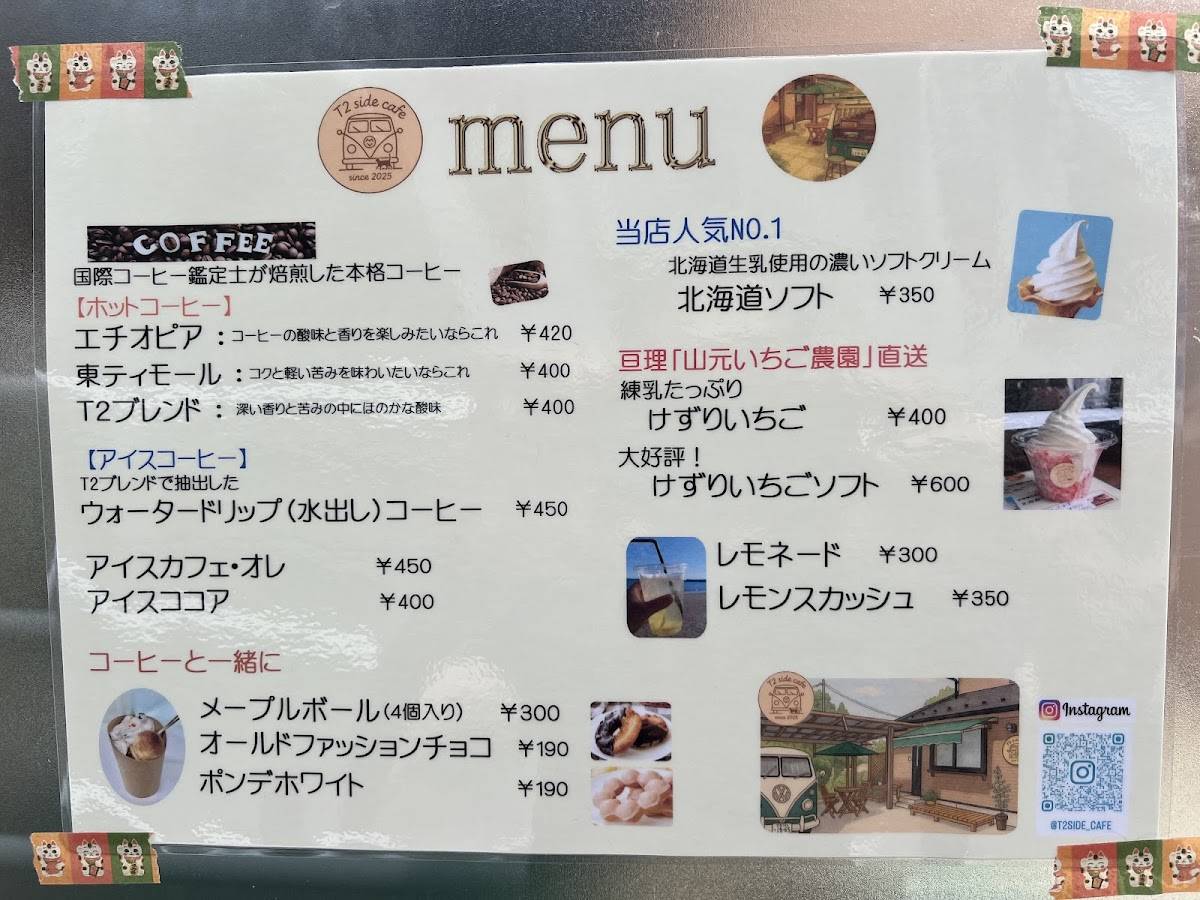 T2 side cafe
since 2025
menu
COFFEE
国際コーヒー鑑定士が焙煎した本格コーヒー
【ホットコーヒー】
エチオピア : コーヒーの酸味と香りを楽しみたいならこれ ¥420
東ティモール : コクと軽い苦みを味わいたいならこれ ¥400
T2ブレンド : 深い香りと苦みの中にほのかな酸味 ¥400
【アイスコーヒー】
T2ブレンドで抽出した
ウォータードリップ(水出し)コーヒー ¥450
アイスカフェ・オレ ¥450
アイスココア ¥400
コーヒーと一緒に
メープルボール(4個入り) ¥300
オールドファッションチョコ ¥190
ポンデホワイト ¥190
当店人気NO.1
北海道生乳使用の濃いソフトクリーム
北海道ソフト ¥350
亘理「山元いちご農園」直送
練乳たっぷり
けずりいちご ¥400
大好評!
けずりいちごソフト ¥600
レモネード ¥300
レモンスカッシュ ¥350
T2 side cafe
since 2025
Instagram
@T2SIDE_CAFE